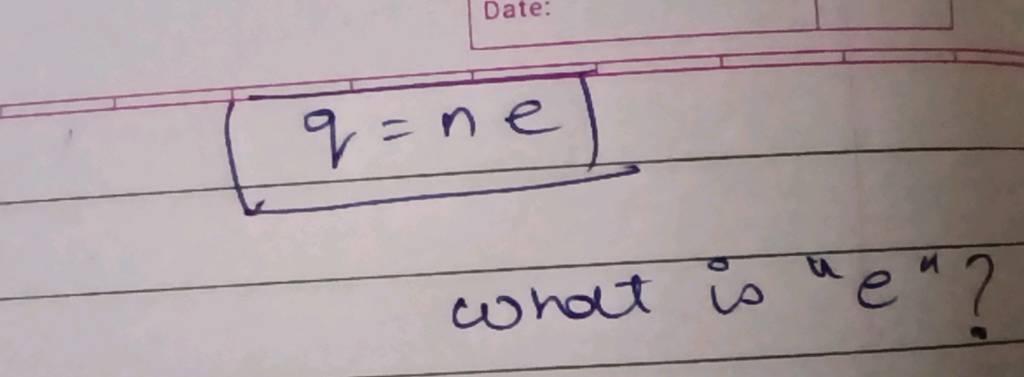 Date:
q = ne
what is "e"?